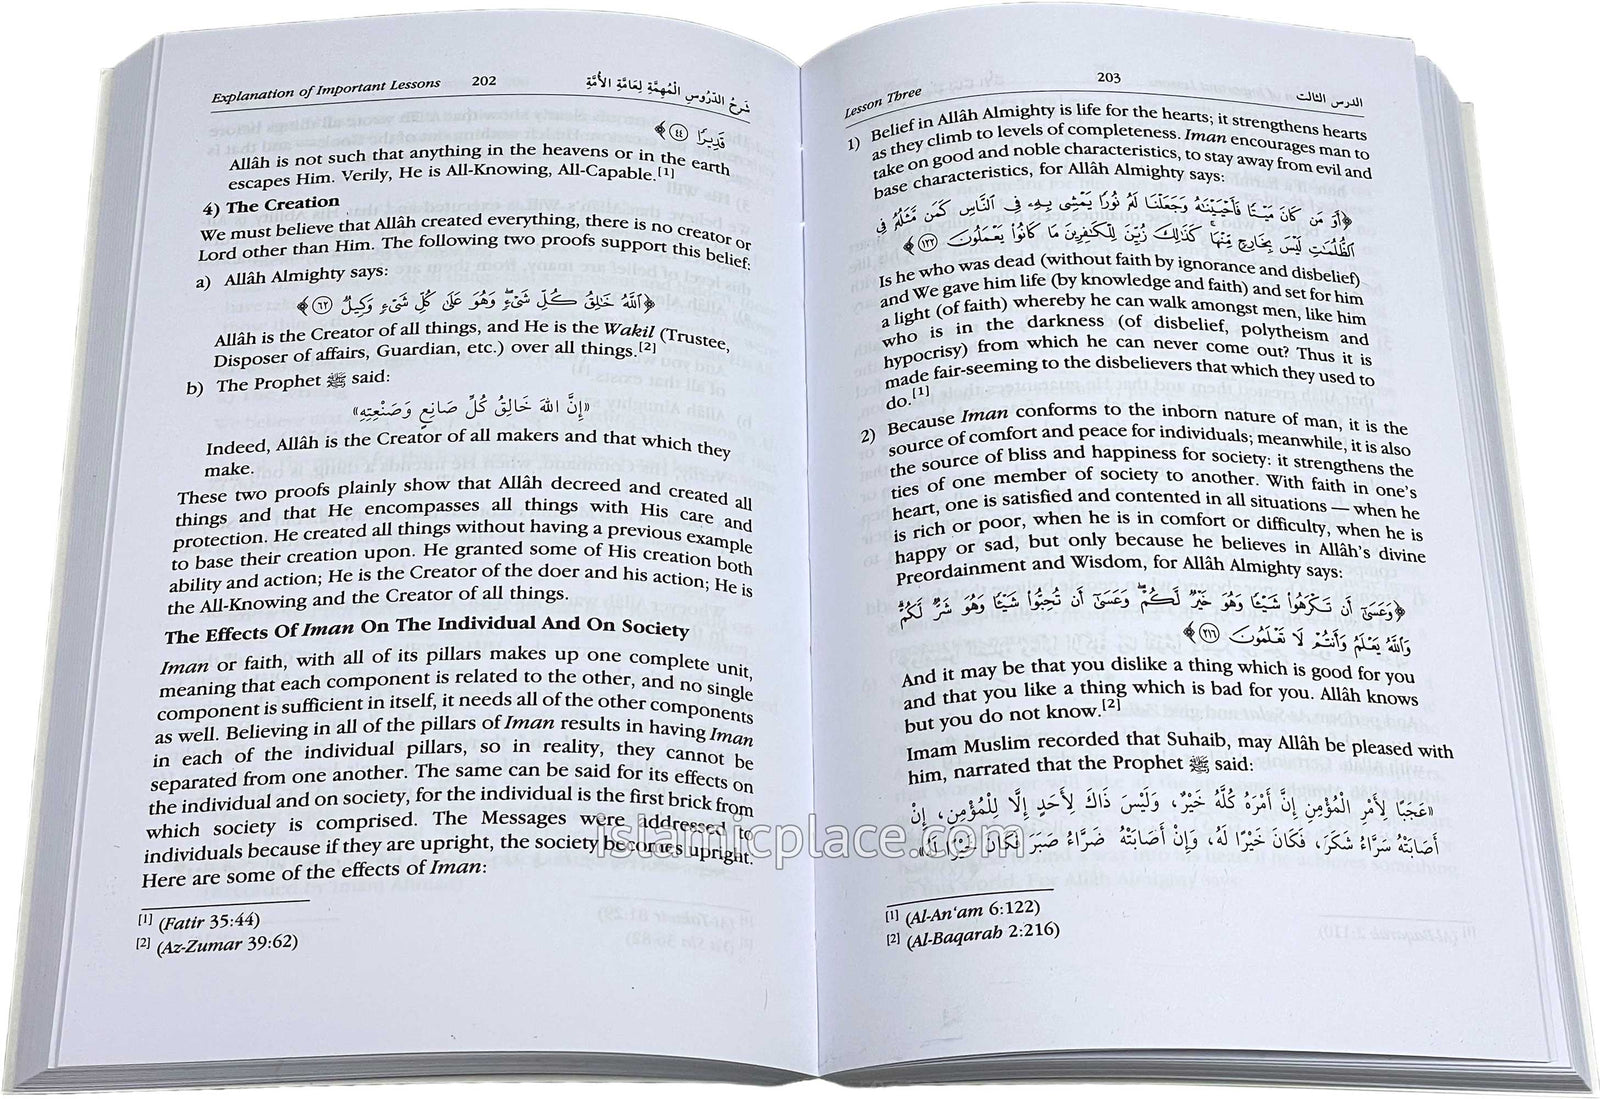 Explanation of Important Lessons 202 شَرْحُ الدُّرُوسِ الْمُهِمَّةِ لِعَامَّةِ الأُمَّةِ
قَدِيرًا ﴿٤٤﴾
Allâh is not such that anything in the heavens or in the earth
escapes Him. Verily, He is All-Knowing, All-Capable.[1]
4) The Creation
We must believe that Allâh created everything, there is no creator or
Lord other than Him. The following two proofs support this belief:
a) Allâh Almighty says:
﴿ٱللَّهُ خَٰلِقُ كُلِّ شَىْءٍ وَهُوَ عَلَىٰ كُلِّ شَىْءٍ وَكِيلٌ ٦٢﴾
Allâh is the Creator of all things, and He is the Wakil (Trustee,
Disposer of affairs, Guardian, etc.) over all things.[2]
b) The Prophet ﷺ said:
«إِنَّ اللهَ خَالِقُ كُلِّ صَانِعٍ وَصَنْعَتِهِ»
Indeed, Allâh is the Creator of all makers and that which they
make.
These two proofs plainly show that Allâh decreed and created all
things and that He encompasses all things with His care and
protection. He created all things without having a previous example
to base their creation upon. He granted some of His creation both
ability and action; He is the Creator of the doer and his action; He is
the All-Knowing and the Creator of all things.
The Effects Of Iman On The Individual And On Society
Iman or faith, with all of its pillars makes up one complete unit,
meaning that each component is related to the other, and no single
component is sufficient in itself, it needs all of the other components
as well. Believing in all of the pillars of Iman results in having Iman
in each of the individual pillars, so in reality, they cannot be
separated from one another. The same can be said for its effects on
the individual and on society, for the individual is the first brick from
which society is comprised. The Messages were addressed to
individuals because if they are upright, the society becomes upright.
Here are some of the effects of Iman:
[1] (Fatir 35:44)
[2] (Az-Zumar 39:62)
Lesson Three 203 الدرس الثالث
1) Belief in Allâh Almighty is life for the hearts; it strengthens hearts
as they climb to levels of completeness. Iman encourages man to
take on good and noble characteristics, to stay away from evil and
base characteristics, for Allâh Almighty says:
﴿أَوَ مَن كَانَ مَيْتًا فَأَحْيَيْنَٰهُ وَجَعَلْنَا لَهُۥ نُورًا يَمْشِى بِهِۦ فِى ٱلنَّاسِ كَمَن مَّثَلُهُۥ فِى
ٱلظُّلُمَٰتِ لَيْسَ بِخَارِجٍ مِّنْهَا كَذَٰلِكَ زُيِّنَ لِلْكَٰفِرِينَ مَا كَانُوا۟ يَعْمَلُونَ ١٢٢﴾
Is he who was dead (without faith by ignorance and disbelief)
and We gave him life (by knowledge and faith) and set for him
a light (of faith) whereby he can walk amongst men, like him
who is in the darkness (of disbelief, polytheism and
hypocrisy) from which he can never come out? Thus it is
made fair-seeming to the disbelievers that which they used to
do.[1]
2) Because Iman conforms to the inborn nature of man, it is the
source of comfort and peace for individuals; meanwhile, it is also
the source of bliss and happiness for society: it strengthens the
ties of one member of society to another. With faith in one's
heart, one is satisfied and contented in all situations — when he
is rich or poor, when he is in comfort or difficulty, when he is
happy or sad, but only because he believes in Allâh's divine
Preordainment and Wisdom, for Allâh Almighty says:
﴿وَعَسَىٰٓ أَن تَكْرَهُوا۟ شَيْـًٔا وَهُوَ خَيْرٌ لَّكُمْ وَعَسَىٰٓ أَن تُحِبُّوا۟ شَيْـًٔا وَهُوَ شَرٌّ لَّكُمْ
وَٱللَّهُ يَعْلَمُ وَأَنتُمْ لَا تَعْلَمُونَ ٢١٦﴾
And it may be that you dislike a thing which is good for you
and that you like a thing which is bad for you. Allâh knows
but you do not know.[2]
Imam Muslim recorded that Suhaib, may Allâh be pleased with
him, narrated that the Prophet ﷺ said:
«عَجَبًا لِأَمْرِ الْمُؤْمِنِ إِنَّ أَمْرَهُ كُلَّهُ خَيْرٌ، وَلَيْسَ ذَاكَ لِأَحَدٍ إِلَّا لِلْمُؤْمِنِ، إِنْ
أَصَابَتْهُ سَرَّاءُ شَكَرَ، فَكَانَ خَيْرًا لَهُ، وَإِنْ أَصَابَتْهُ ضَرَّاءُ صَبَرَ فَكَانَ خَيْرًا لَهُ»
[1] (Al-An'am 6:122)
[2] (Al-Baqarah 2:216)
islamicplace.com